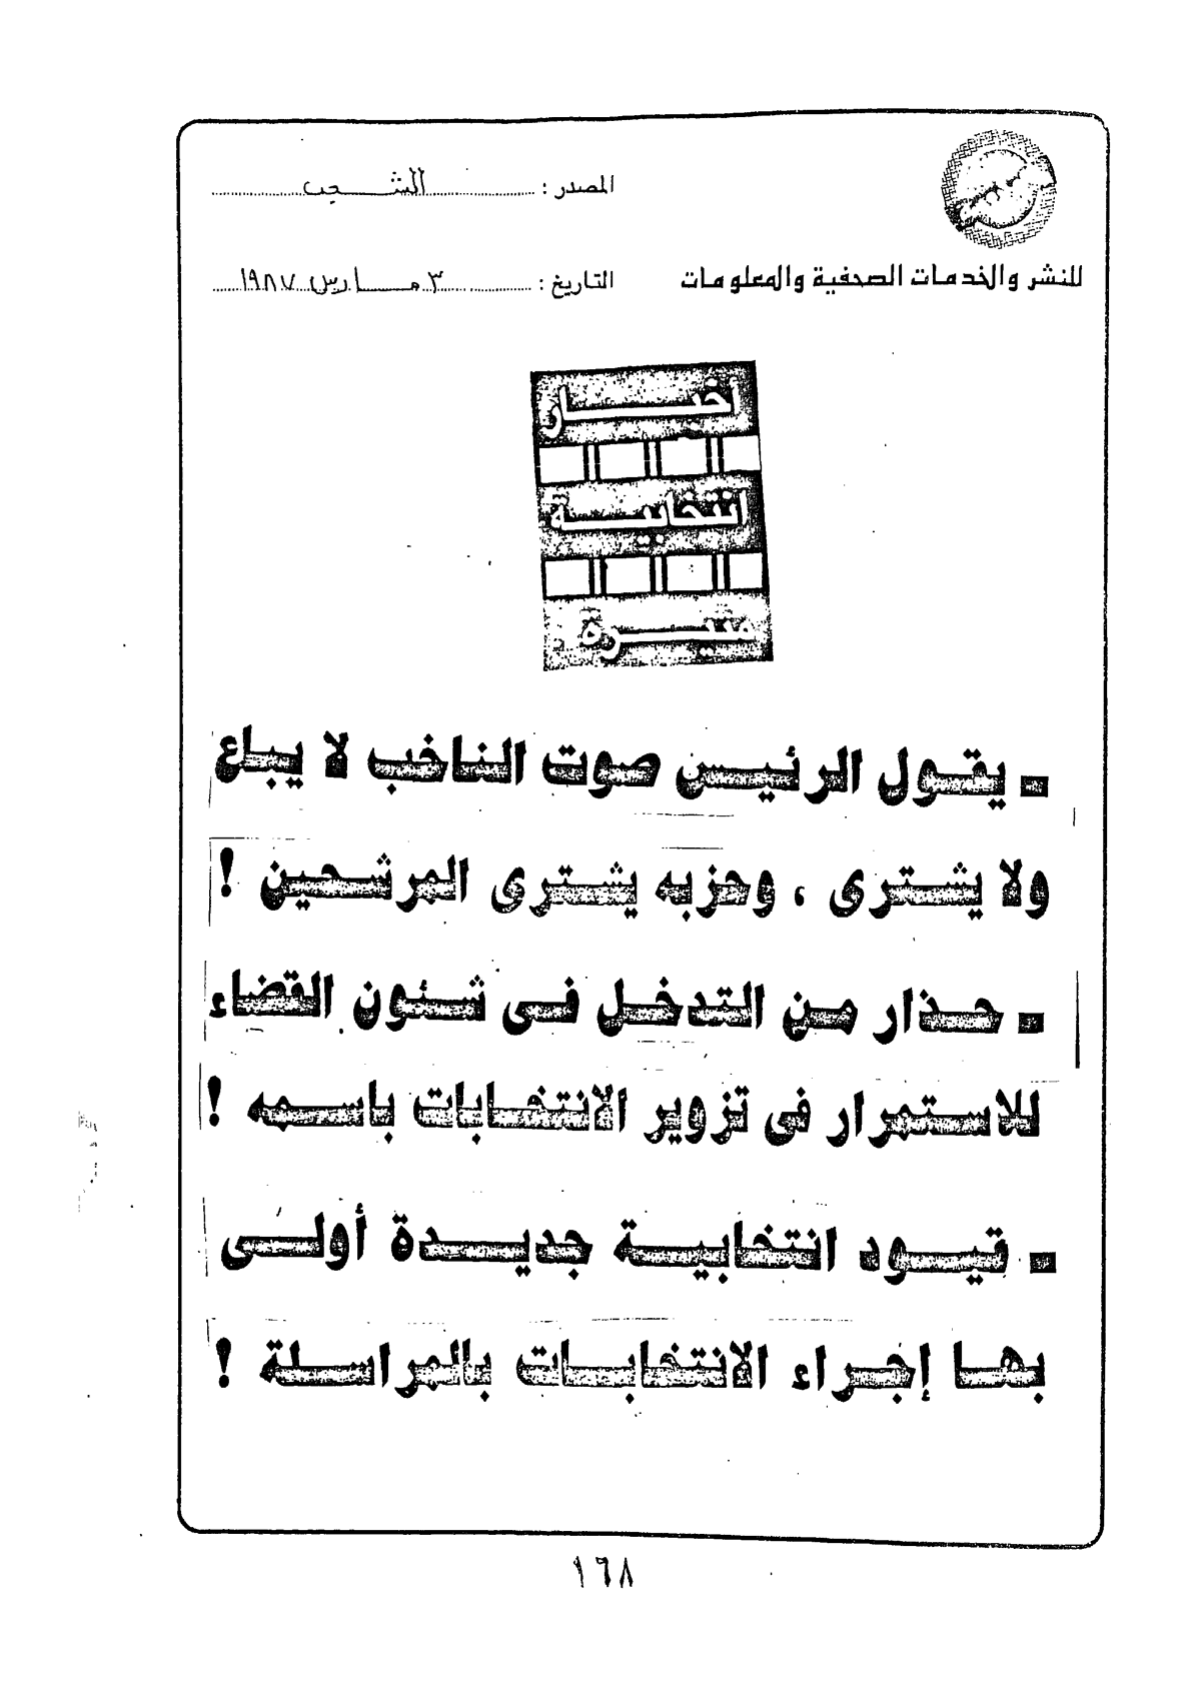 المصدر : الشعب
للنشر والخدمات الصحفية والمعلومات
التاريخ : ٣ مارس ١٩٨٧
اخبار
انتخابية
مثيرة
- يقول الرئيس صوت الناخب لا يباع
ولا يشترى ، وحزبه يشترى المرشحين !
- حذار من التدخل فى شئون القضاء
للاستمرار فى تزوير الانتخابات باسمه !
- قيود انتخابية جديدة أولى
بها إجراء الانتخابات بالمراسلة !
١٦٨